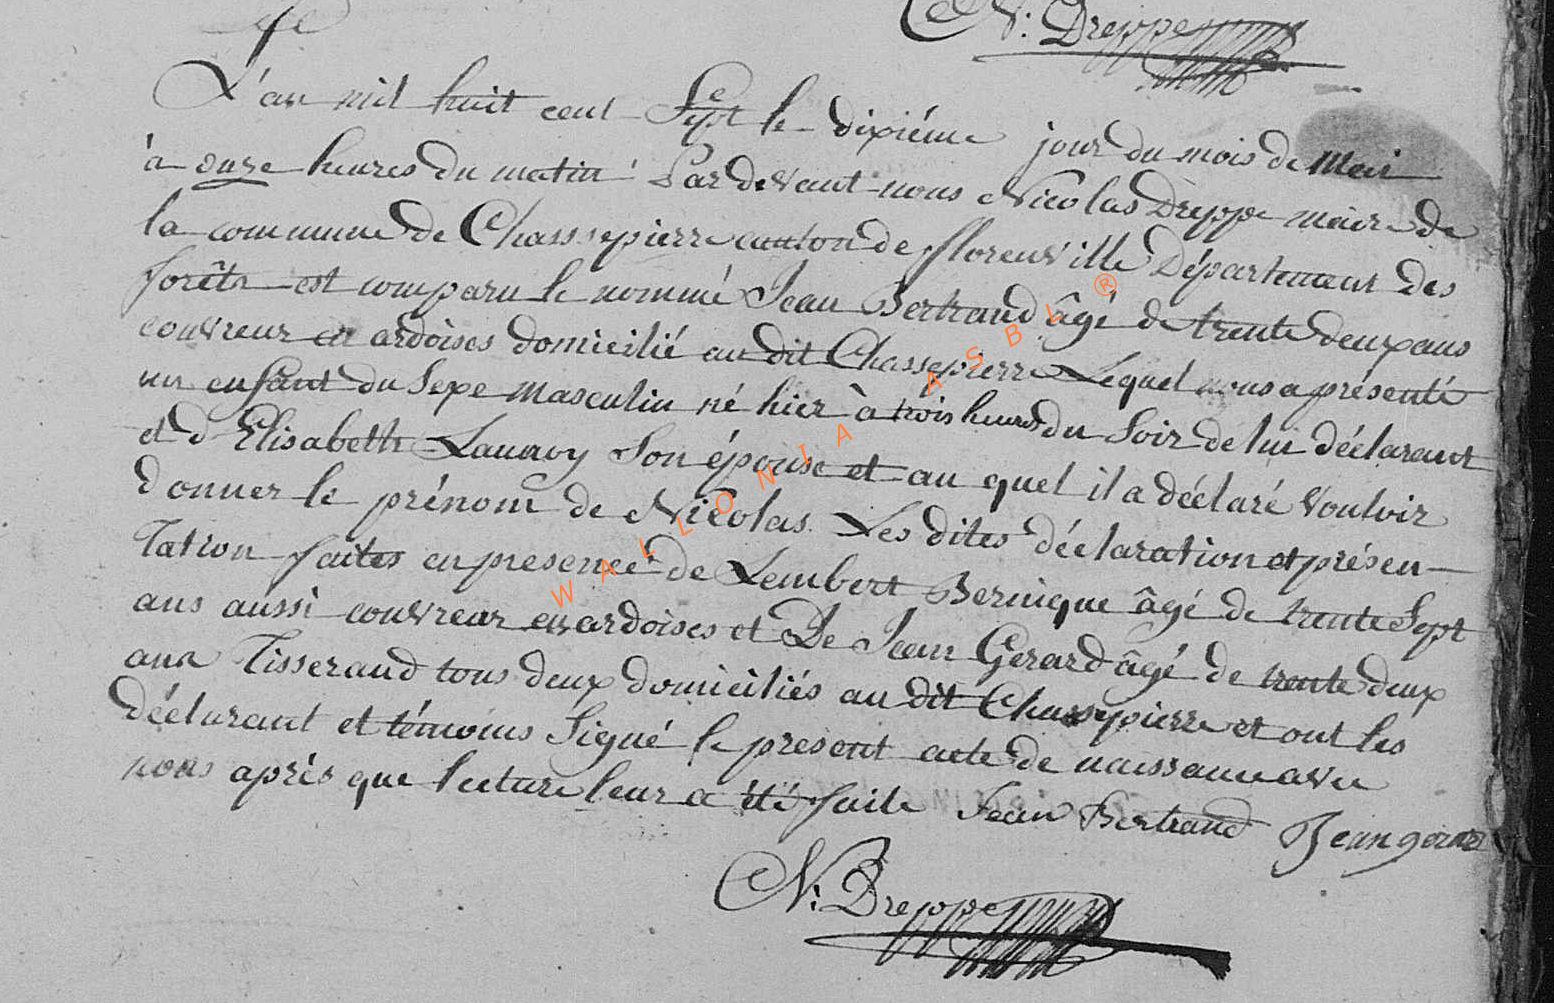 N: Dreppe
L'an mil huit cent Sept le dixiéme jour du mois de Mai
à onze heures du matin Pardevant nous Nicolas Dreppe maire de
la commune de Chassepierre canton de florenville Département des
forêts est comparu le nommé Jean Bertrand âgé de trente deux ans
couvreur en ardoises domicilié au dit Chassepierre Lequel nous a présenté
un enfant du Sexe Masculin né hier à trois heures du Soir de lui déclarant
et d'Elisabeth Son épouse et au quel il a déclaré vouloir
donner le prénom de Nicolas. Les dites déclaration et présen-
tation faites en presence de Lembert Bernique âgé de trente Sept
ans aussi couvreur en ardoises et De Jean Gerard âgé de trente deux
ans Tisserand tous deux domiciliés au dit Chassepierre et ont les
déclarant et témoins Signé le present acte de naissance avec
nous après que lecture leur a été faite Jean Bertrand Jean gerard
N: Dreppe
WALLONIA ASBL ®